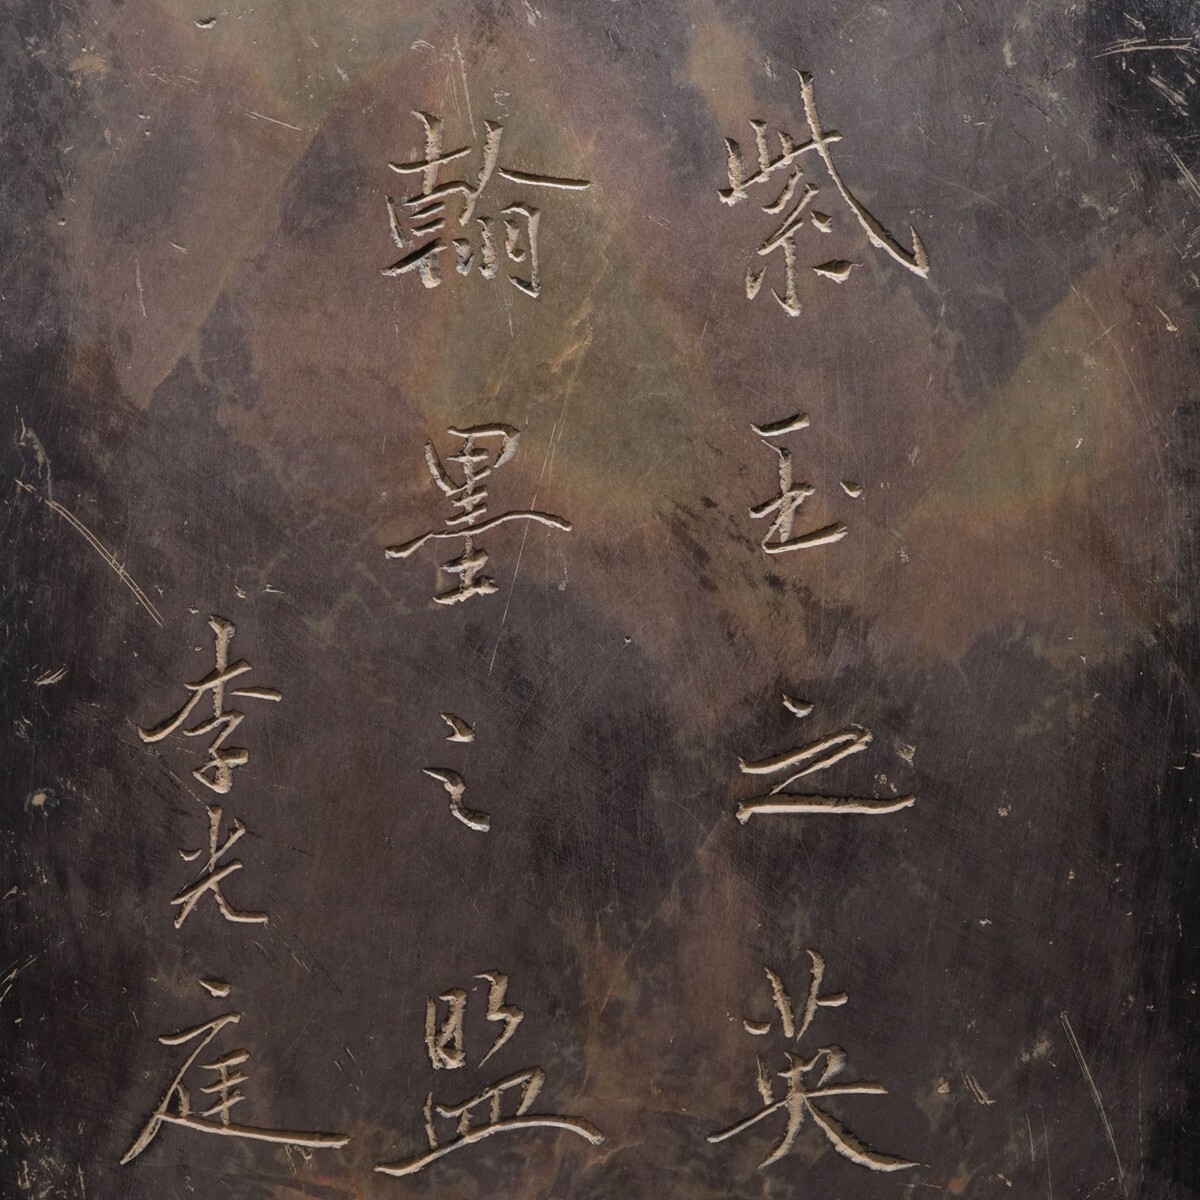 紫玉之英
翰墨之盟
李光庭